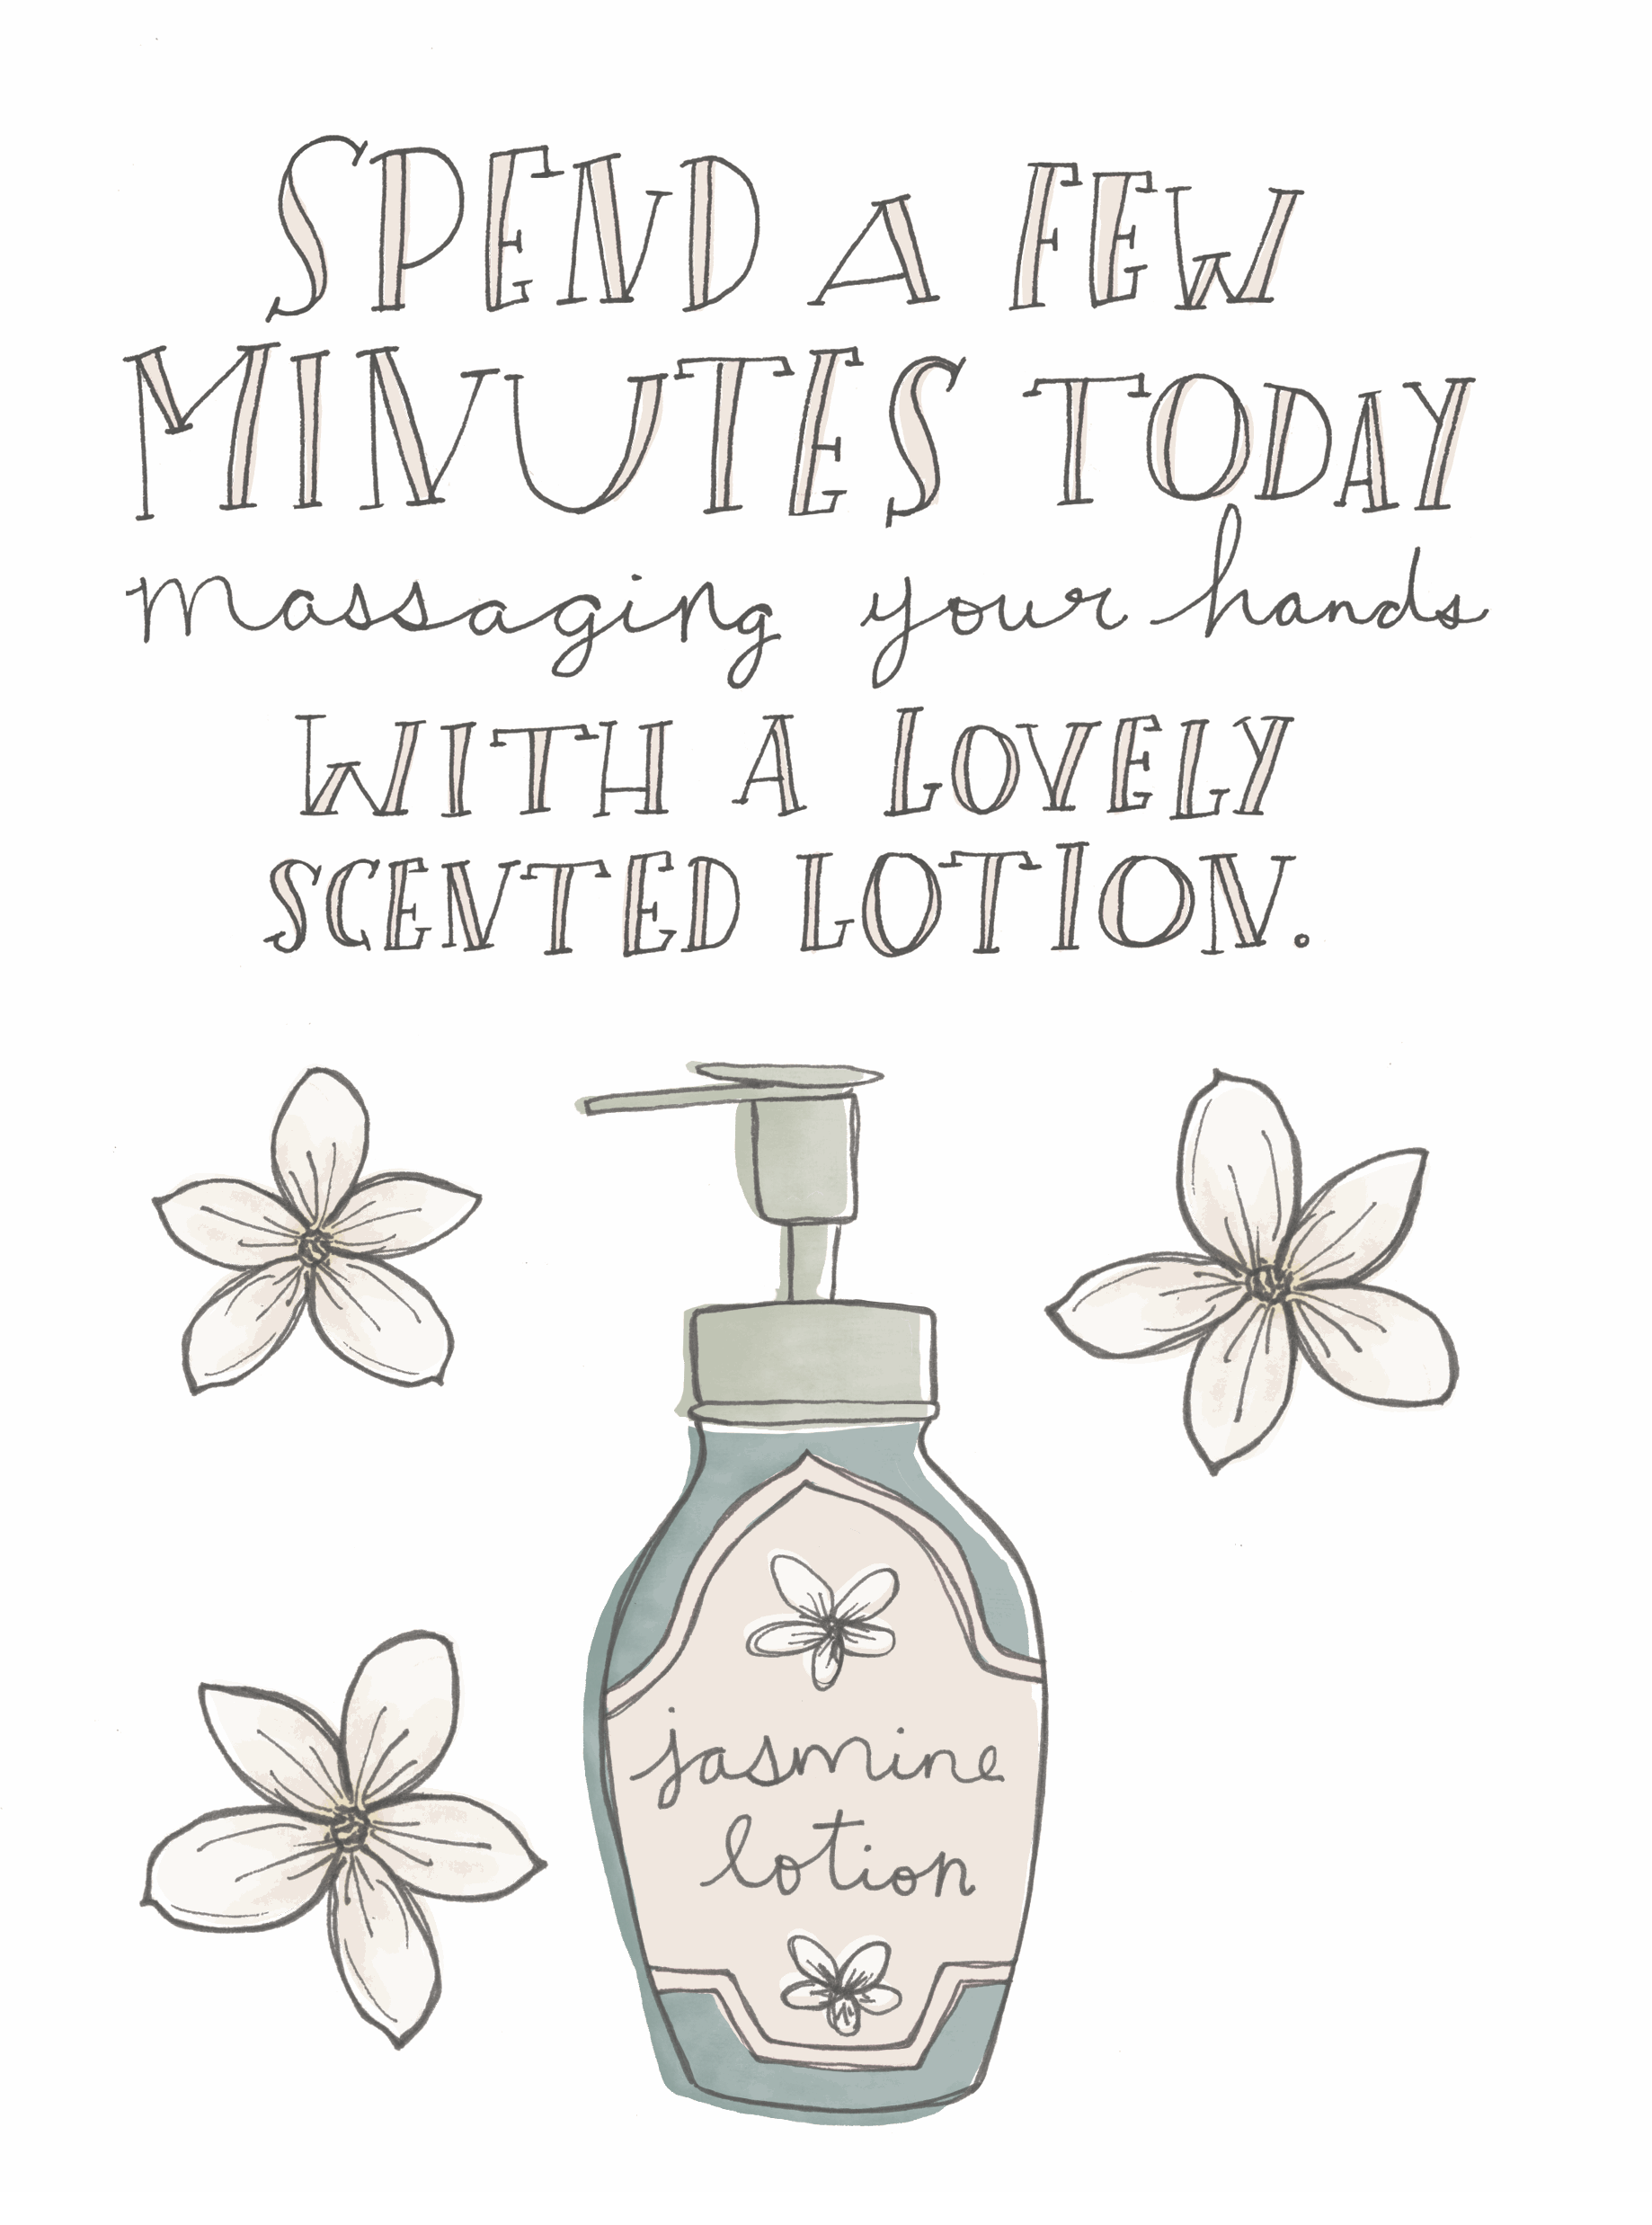 SPEND A FEW
MINUTES TODAY
massaging your hands
WITH A LOVELY
SCENTED LOTION.
jasmine
lotion